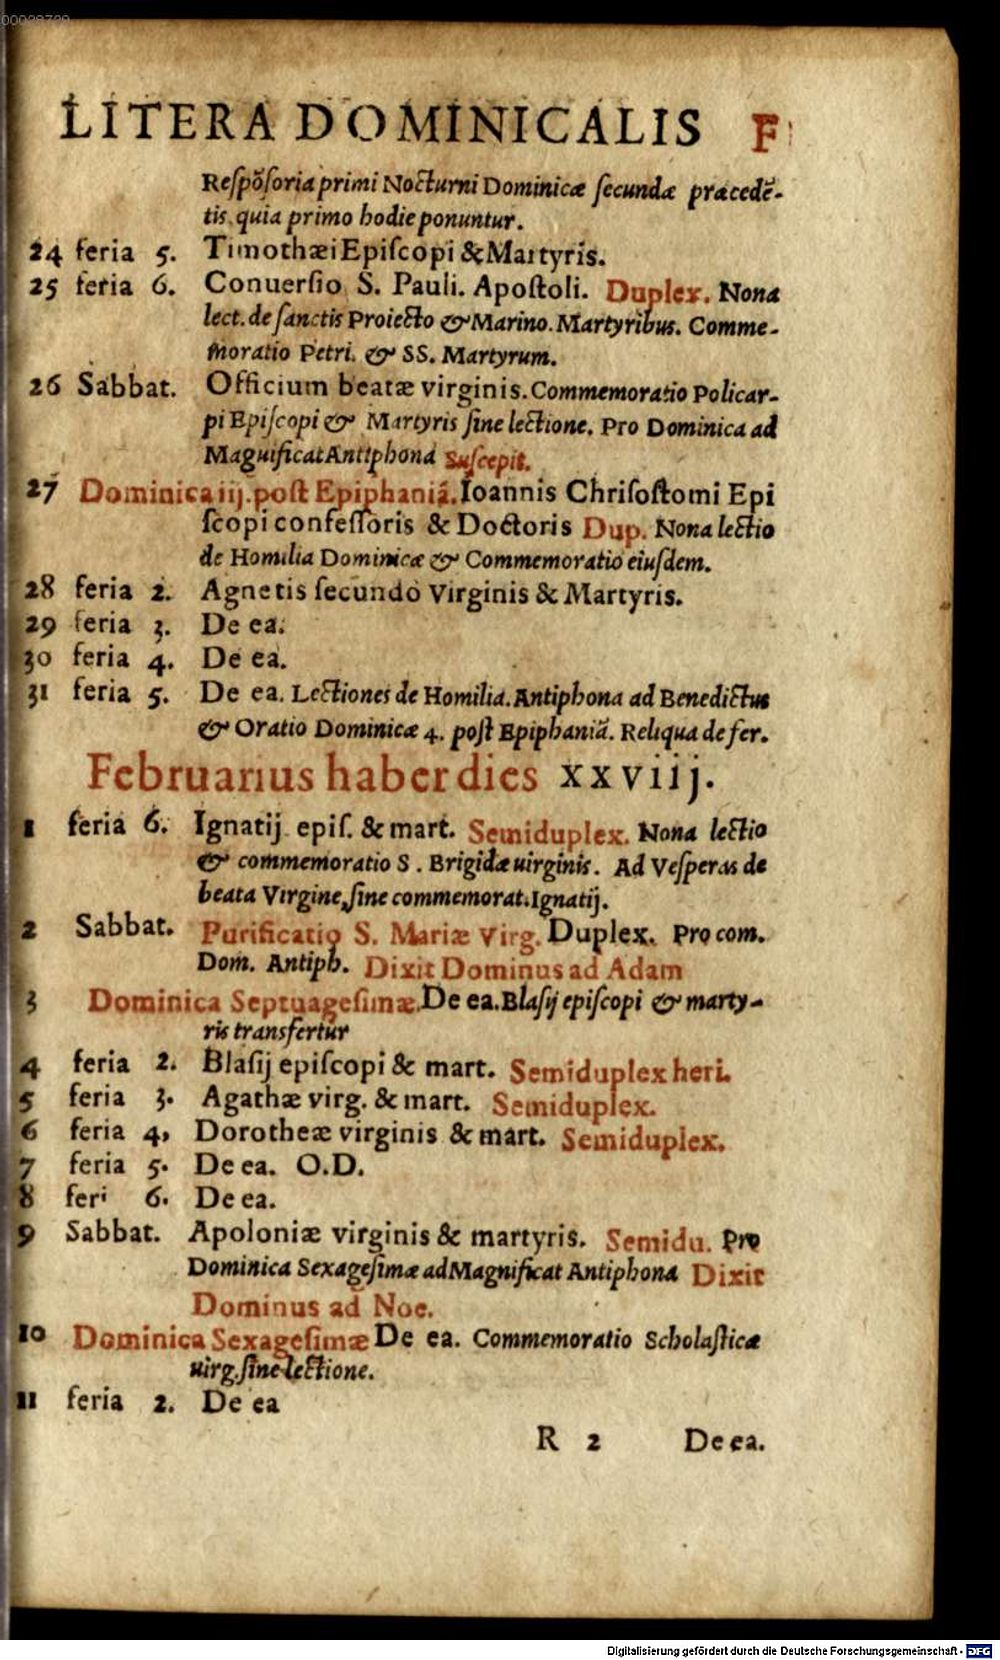 00028729
LITERA DOMINICALIS F
Reſpōſoria primi Nocturni Dominicæ ſecundæ præcedē-
tis. quia primo hodie ponuntur.
24 feria 5. Timothæi Epiſcopi & Martyris.
25 feria 6. Conuerſio S. Pauli. Apoſtoli. Duplex. Nona
lect. de ſanctis Proiecto & Marino. Martyribus. Comme-
moratio Petri. & SS. Martyrum.
26 Sabbat. Officium beatæ virginis. Commemoratio Policar-
pi Epiſcopi & Martyris ſine lectione. Pro Dominica ad
Magnificat Antiphona Suſcepit.
27 Dominica iij. poſt Epiphaniā. Ioannis Chriſoſtomi Epi
ſcopi confeſſoris & Doctoris Dup. Nona lectio
de Homilia Dominicæ & Commemoratio eiuſdem.
28 feria 2. Agnetis ſecundò Virginis & Martyris.
29 feria 3. De ea.
30 feria 4. De ea.
31 feria 5. De ea. Lectiones de Homilia. Antiphona ad Benedictus
& Oratio Dominicæ 4. poſt Epiphaniā. Reliqua de fer.
Februarius habet dies xxviij.
1 feria 6. Ignatij epiſ. & mart. Semiduplex. Nona lectio
& commemoratio S. Brigidæ uirginis. Ad Veſperas de
beata Virgine, ſine commemorat. Ignatij.
2 Sabbat. Purificatio S. Mariæ Virg. Duplex. Pro com.
Dom. Antiph. Dixit Dominus ad Adam
3 Dominica Septuageſimæ. De ea. Blaſij epiſcopi & marty-
ris transfertur
4 feria 2. Blaſij epiſcopi & mart. Semiduplex heri.
5 feria 3. Agathæ virg. & mart. Semiduplex.
6 feria 4, Dorotheæ virginis & mart. Semiduplex.
7 feria 5. De ea. O.D.
8 feri 6. De ea.
9 Sabbat. Apoloniæ virginis & martyris. Semidu. Pro
Dominica Sexageſimæ ad Magnificat Antiphona Dixit
Dominus ad Noe.
10 Dominica Sexageſimæ De ea. Commemoratio Scholaſticæ
uirg. ſine lectione.
11 feria 2. De ea
R 2 De ea.
Digitalisierung gefördert durch die Deutsche Forschungsgemeinschaft - DFG